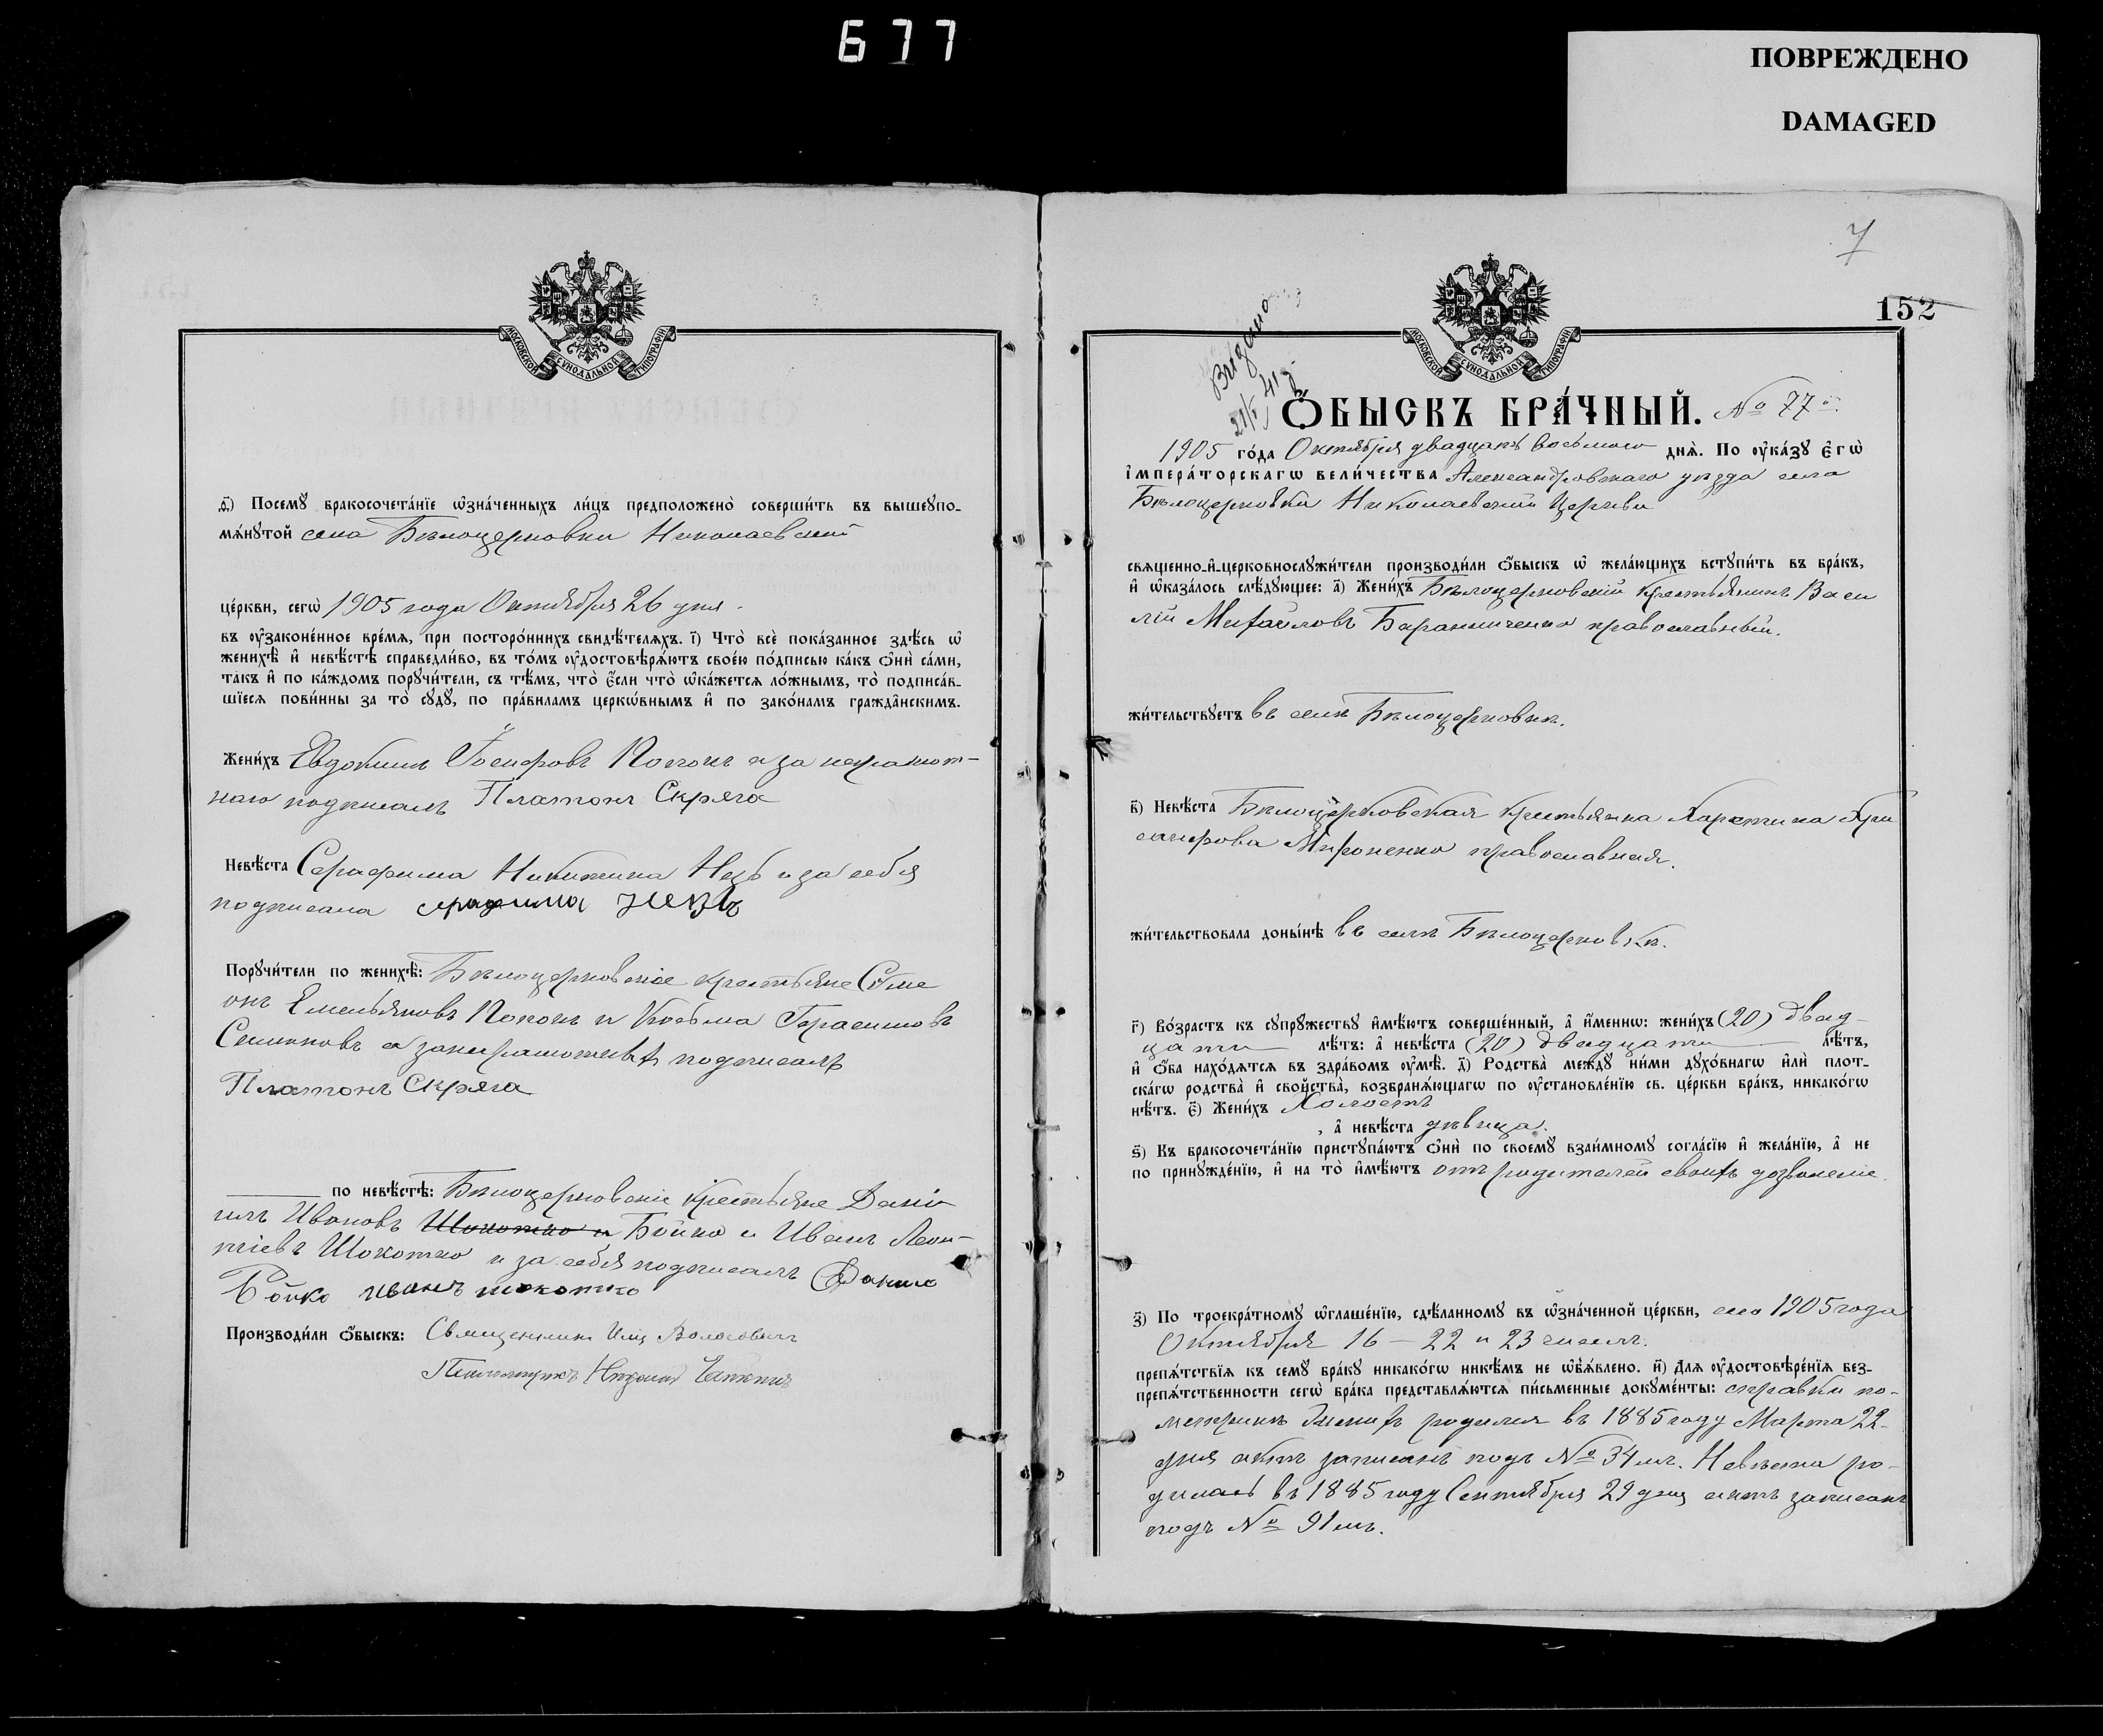 677
ПОВРЕЖДЕНО
DAMAGED
МОСКОВСКОЙ СѴНОДАЛЬНОЙ ТИПОГРАФІИ
д҃) Посемꙋ̀ бракосочета́нїе ѡ҆зна́ченныхъ ли́цъ предположено̀ соверши́ть въ вышеꙋпо-
мѧ́нꙋтой села Бѣлоцерковки Николаевской
це́ркви, сегѡ̀ 1905 года Октября 26 дня.
въ ᲂу҆законе́нное вре́мѧ, при посторо́ннихъ свидѣ́телѧхъ. і҃) Что̀ всѐ пока́занное здѣ́сь ѡ҆
женихѣ̀ и҆ невѣ́стѣ справедли́во, въ то́мъ ᲂу҆достовѣрѧ́ютъ свое́ю по́дписью ка́къ ѻ҆нѝ са́ми,
та́къ и҆ по ка́ждомъ порꙋчи́тели, съ тѣ́мъ, что̀ є҆́сли что̀ ѡ҆ка́жется ло́жнымъ, то̀ подписа́в-
шїеся пови́нны за то̀ сꙋдꙋ̀, по пра́виламъ церкѡ́внымъ и҆ по зако́намъ гражда́нскимъ.
Жени́хъ Евдокимъ Іосифовъ а за неграмот-
наго подписалъ Платонъ Скряга
Невѣ́ста Серафима Никитина Незъ и за себя
подписала серафима незъ
Порꙋчи́тели по женихѣ̀: Бѣлоцерковскіе крестьяне Симе
онъ Емельяновъ и Косьма Герасимовъ
а за неграмотныхъ подписалъ
Платонъ Скряга
по невѣ́стѣ: Бѣлоцерковскіе крестьяне Дані
илъ Ивановъ Шокотко и Бойко и Иванъ Леон-
тіевъ Шокотко и за себя подписалъ Данило
Бойко иванъ шокотко
Производи́ли ѻ҆́быскъ: Священникъ
Псаломщикъ
7
152
Видано
21/I 41 г
МОСКОВСКОЙ СѴНОДАЛЬНОЙ ТИПОГРАФІИ
Ѻ҆́БЫСКЪ БРА́ЧНЫЙ. № 77й.
1905 го́да Октября двадцать восьмого днѧ̀. По ᲂу҆ка́зꙋ Є҆гѡ̀
і҆мпера́торскагѡ вели́чества Александровскаго уѣзда села
Бѣлоцерковки Николаевской Церкви
свѧще́нно-и҆-церковнослꙋжи́тели производи́ли ѻ҆́быскъ ѡ҆ жела́ющихъ встꙋпи́ть въ бра́къ,
и҆ ѡ҆каза́лось слѣ́дꙋющее: а҃) Жени́хъ Бѣлоцерковскій крестьянинъ Васи
лій Михайловъ Баранниченко православный.
жи́тельствꙋетъ въ селѣ Бѣлоцерковкѣ.
в҃) Невѣ́ста Бѣлоцерковская крестьянка Харитина Хри
санфова Мироненко православная.
жи́тельствовала доны́нѣ въ селѣ Бѣлоцерковкѣ.
г҃) Во́зрастъ къ сꙋпрꙋ́жествꙋ и҆мѣ́ютъ соверше́нный, а҆ и҆́меннѡ: жени́хъ (20) двад-
цати лѣ́тъ: а҆ невѣ́ста (20) двадцати лѣ́тъ,
и҆ ѻ҆́ба нахо́дѧтся въ здра́вомъ ᲂу҆мѣ̀. д҃) Родства̀ междꙋ̀ ни́ми дꙋхо́внагѡ и҆лѝ плот-
ска́гѡ родства̀ и҆ свойства̀, возбранѧ́ющагѡ по ᲂу҆становле́нїю св. це́ркви бра́къ, никако́гѡ
нѣ́тъ. є҃) Жени́хъ Холостъ
, а҆ невѣ́ста дѣвица.
ѕ҃) Къ бракосочета́нїю пристꙋпа́ютъ ѻ҆нѝ по своемꙋ̀ взаи́мномꙋ согла́сїю и҆ жела́нїю, а҆ не
по принꙋжде́нїю, и҆ на то̀ и҆мѣ́ютъ отъ родителей своихъ дозволеніе.
з҃) По троекра́тномꙋ ѡ҆глаше́нїю, сдѣ́ланномꙋ въ ѡ҆зна́ченной це́ркви, сего 1905 года
Октября 16 – 22 и 23 чиселъ.
препѧ́тствїѧ къ семꙋ̀ бра́кꙋ никако́гѡ никѣ́мъ не ѡ҆б̾ѧ́влено. и҃) Длѧ ᲂу҆достовѣре́нїѧ без-
препѧ́тственности сегѡ̀ бра́ка представлѧ́ются пи́сьменные докꙋме́нты: справки по-
метрикѣ Женихъ родился въ 1885 году Марта 22-
дня актъ записанъ подъ № 34мъ. Невѣста ро-
дилась въ 1885 году Сентября 29 дня актъ записанъ
подъ № 91мъ.